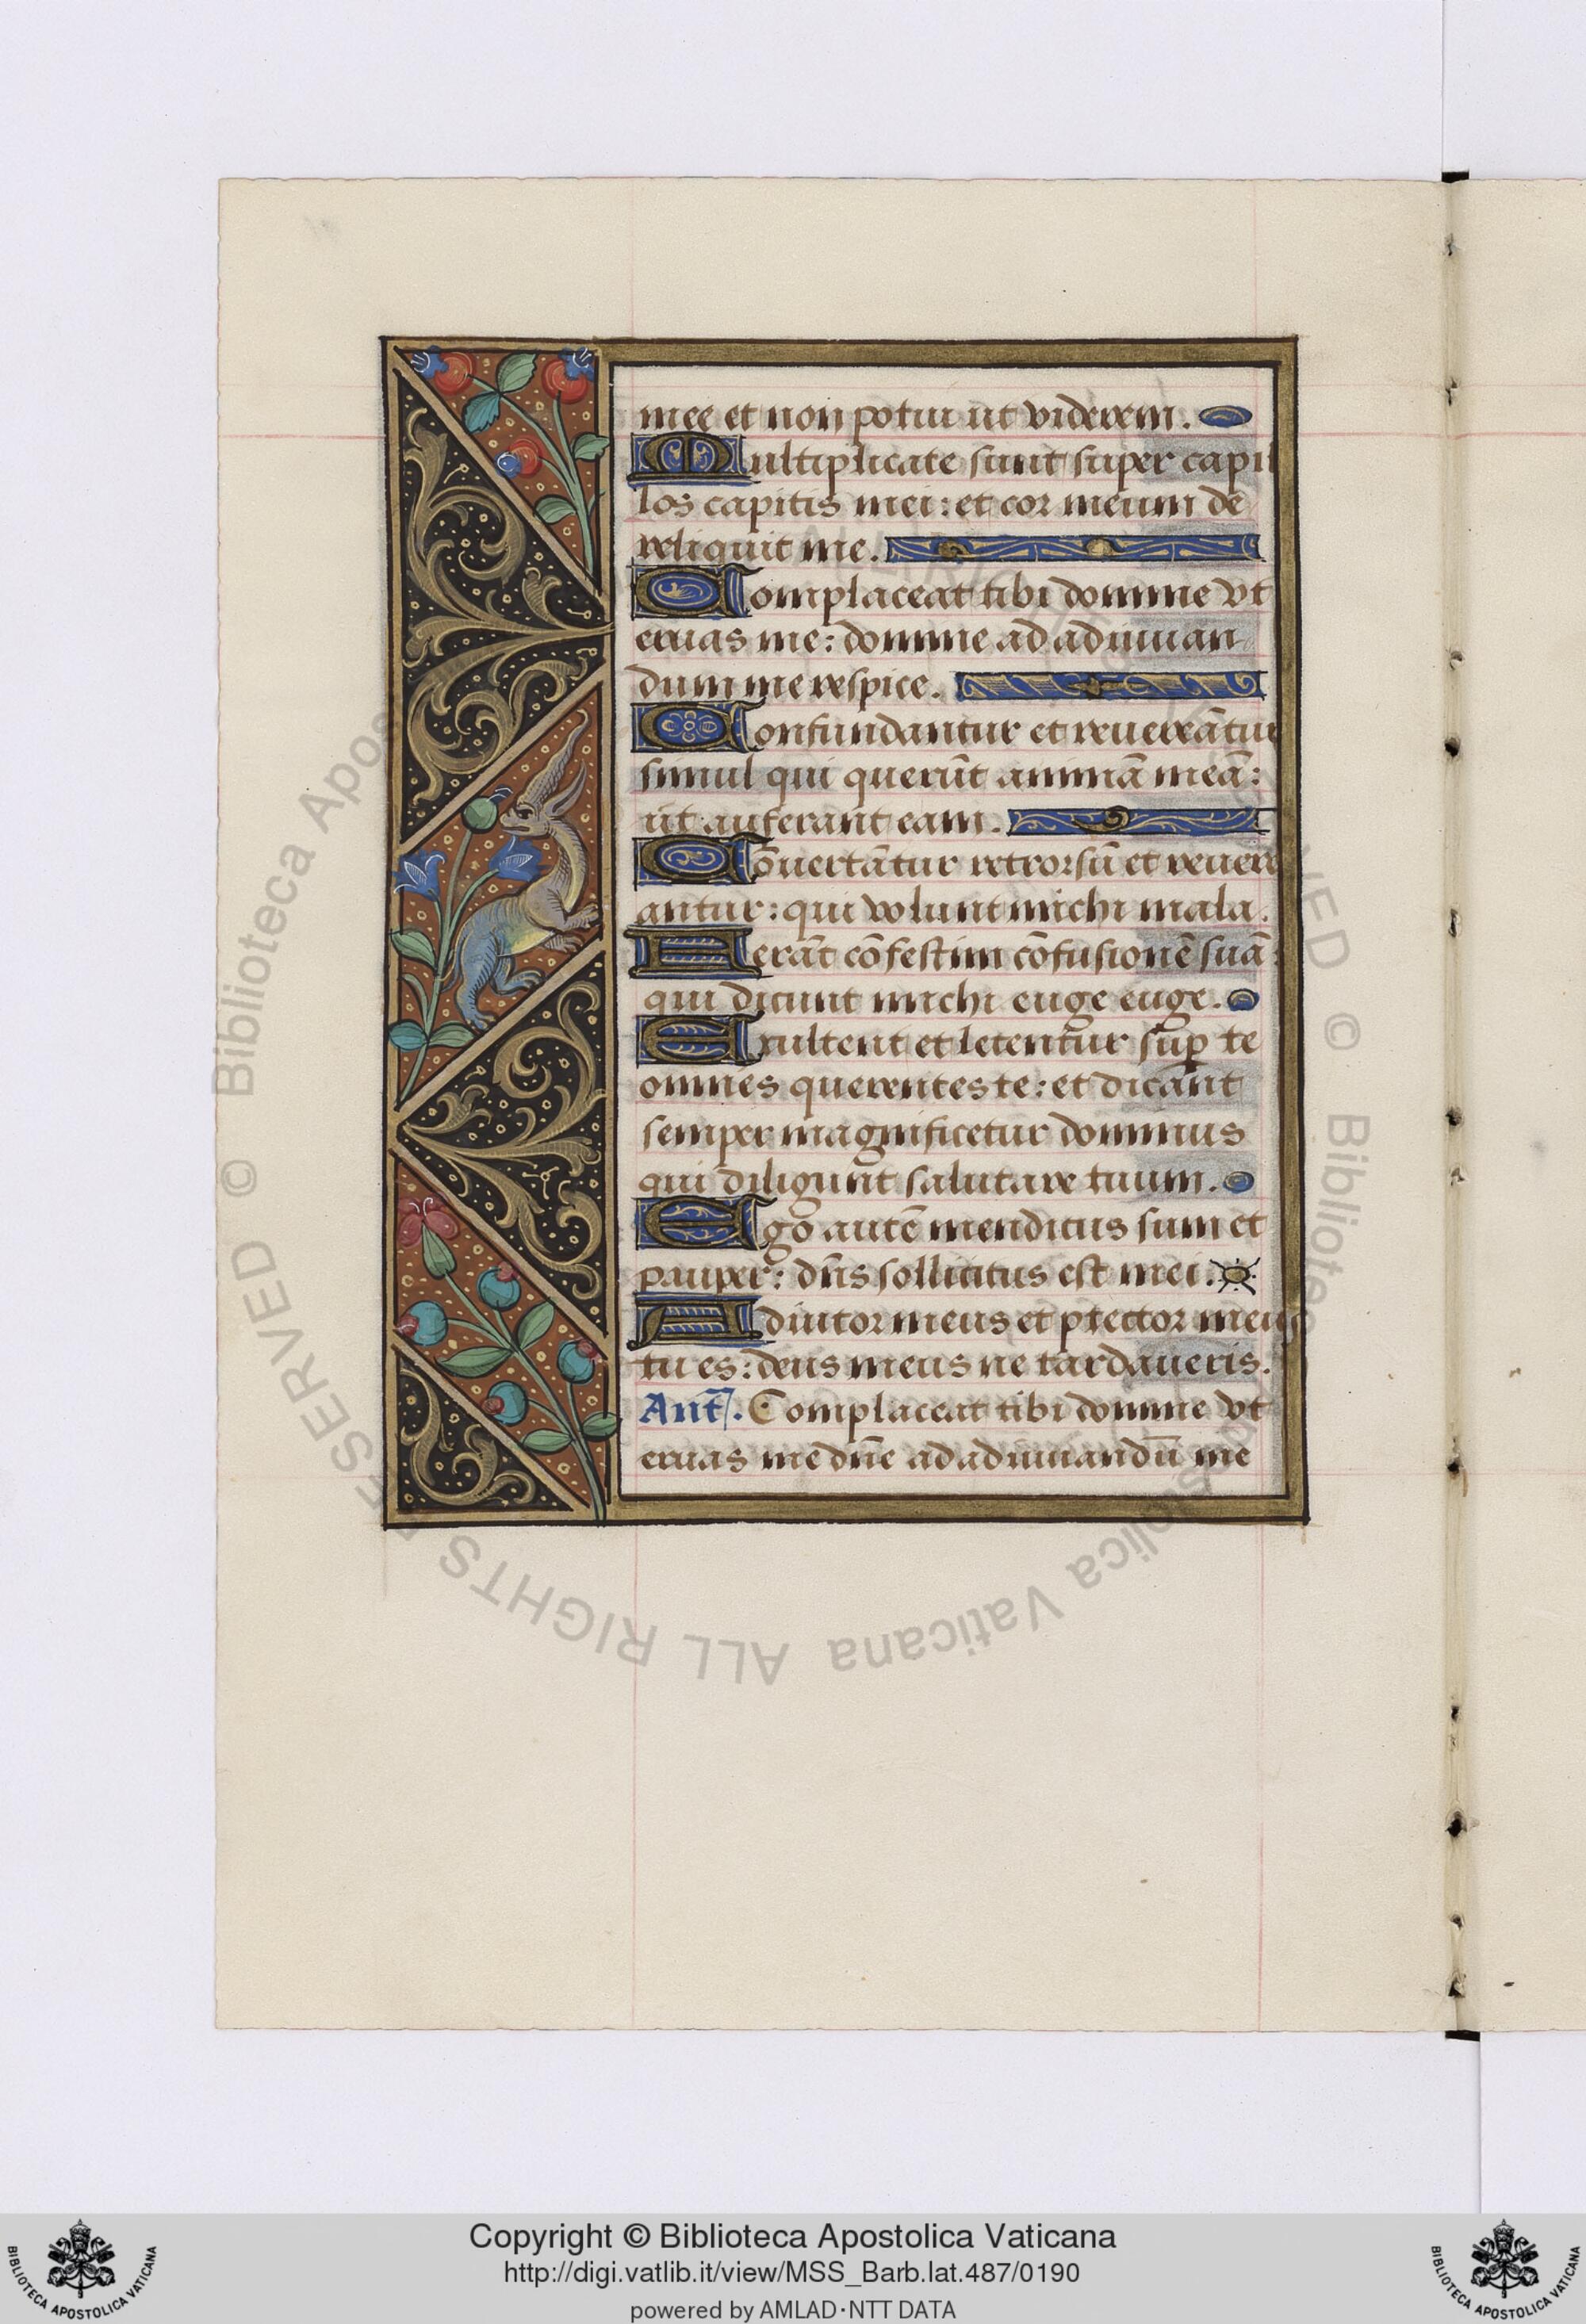 mee et non potui ut viderem.
Multiplicate sunt super capil
los capitis mei: et cor meum de
reliquit me.
Complaceat tibi domine vt
eruas me: domine ad adiuuan
dum me respice.
Confundantur et reuereãtur
simul qui querũt animã meã:
ut auferant eam.
Cõuertãtur retrorsũ et reuere
antur: qui volunt michi mala.
Ferãt cõfestim cõfusionẽ suã:
qui dicunt michi euge euge.
Exultent et letentur suꝑ te
omnes querentes te: et dicant
semper magnificetur dominus
qui diligunt salutare tuum.
Ego autẽ mendicus sum et
pauper: dñs sollicitus est mei.
Adiutor meus et ꝓtector meus
tu es: deus meus ne tardaueris.
Añt. Complaceat tibi domine vt
eruas me dñe ad adiuuandũ me
© Biblioteca Apostolica Vaticana ALL RIGHTS RESERVED
Copyright © Biblioteca Apostolica Vaticana
http://digi.vatlib.it/view/MSS_Barb.lat.487/0190
powered by AMLAD·NTT DATA
BIBLIOTECA APOSTOLICA VATICANA
BIBLIOTECA APOSTOLICA VATICANA